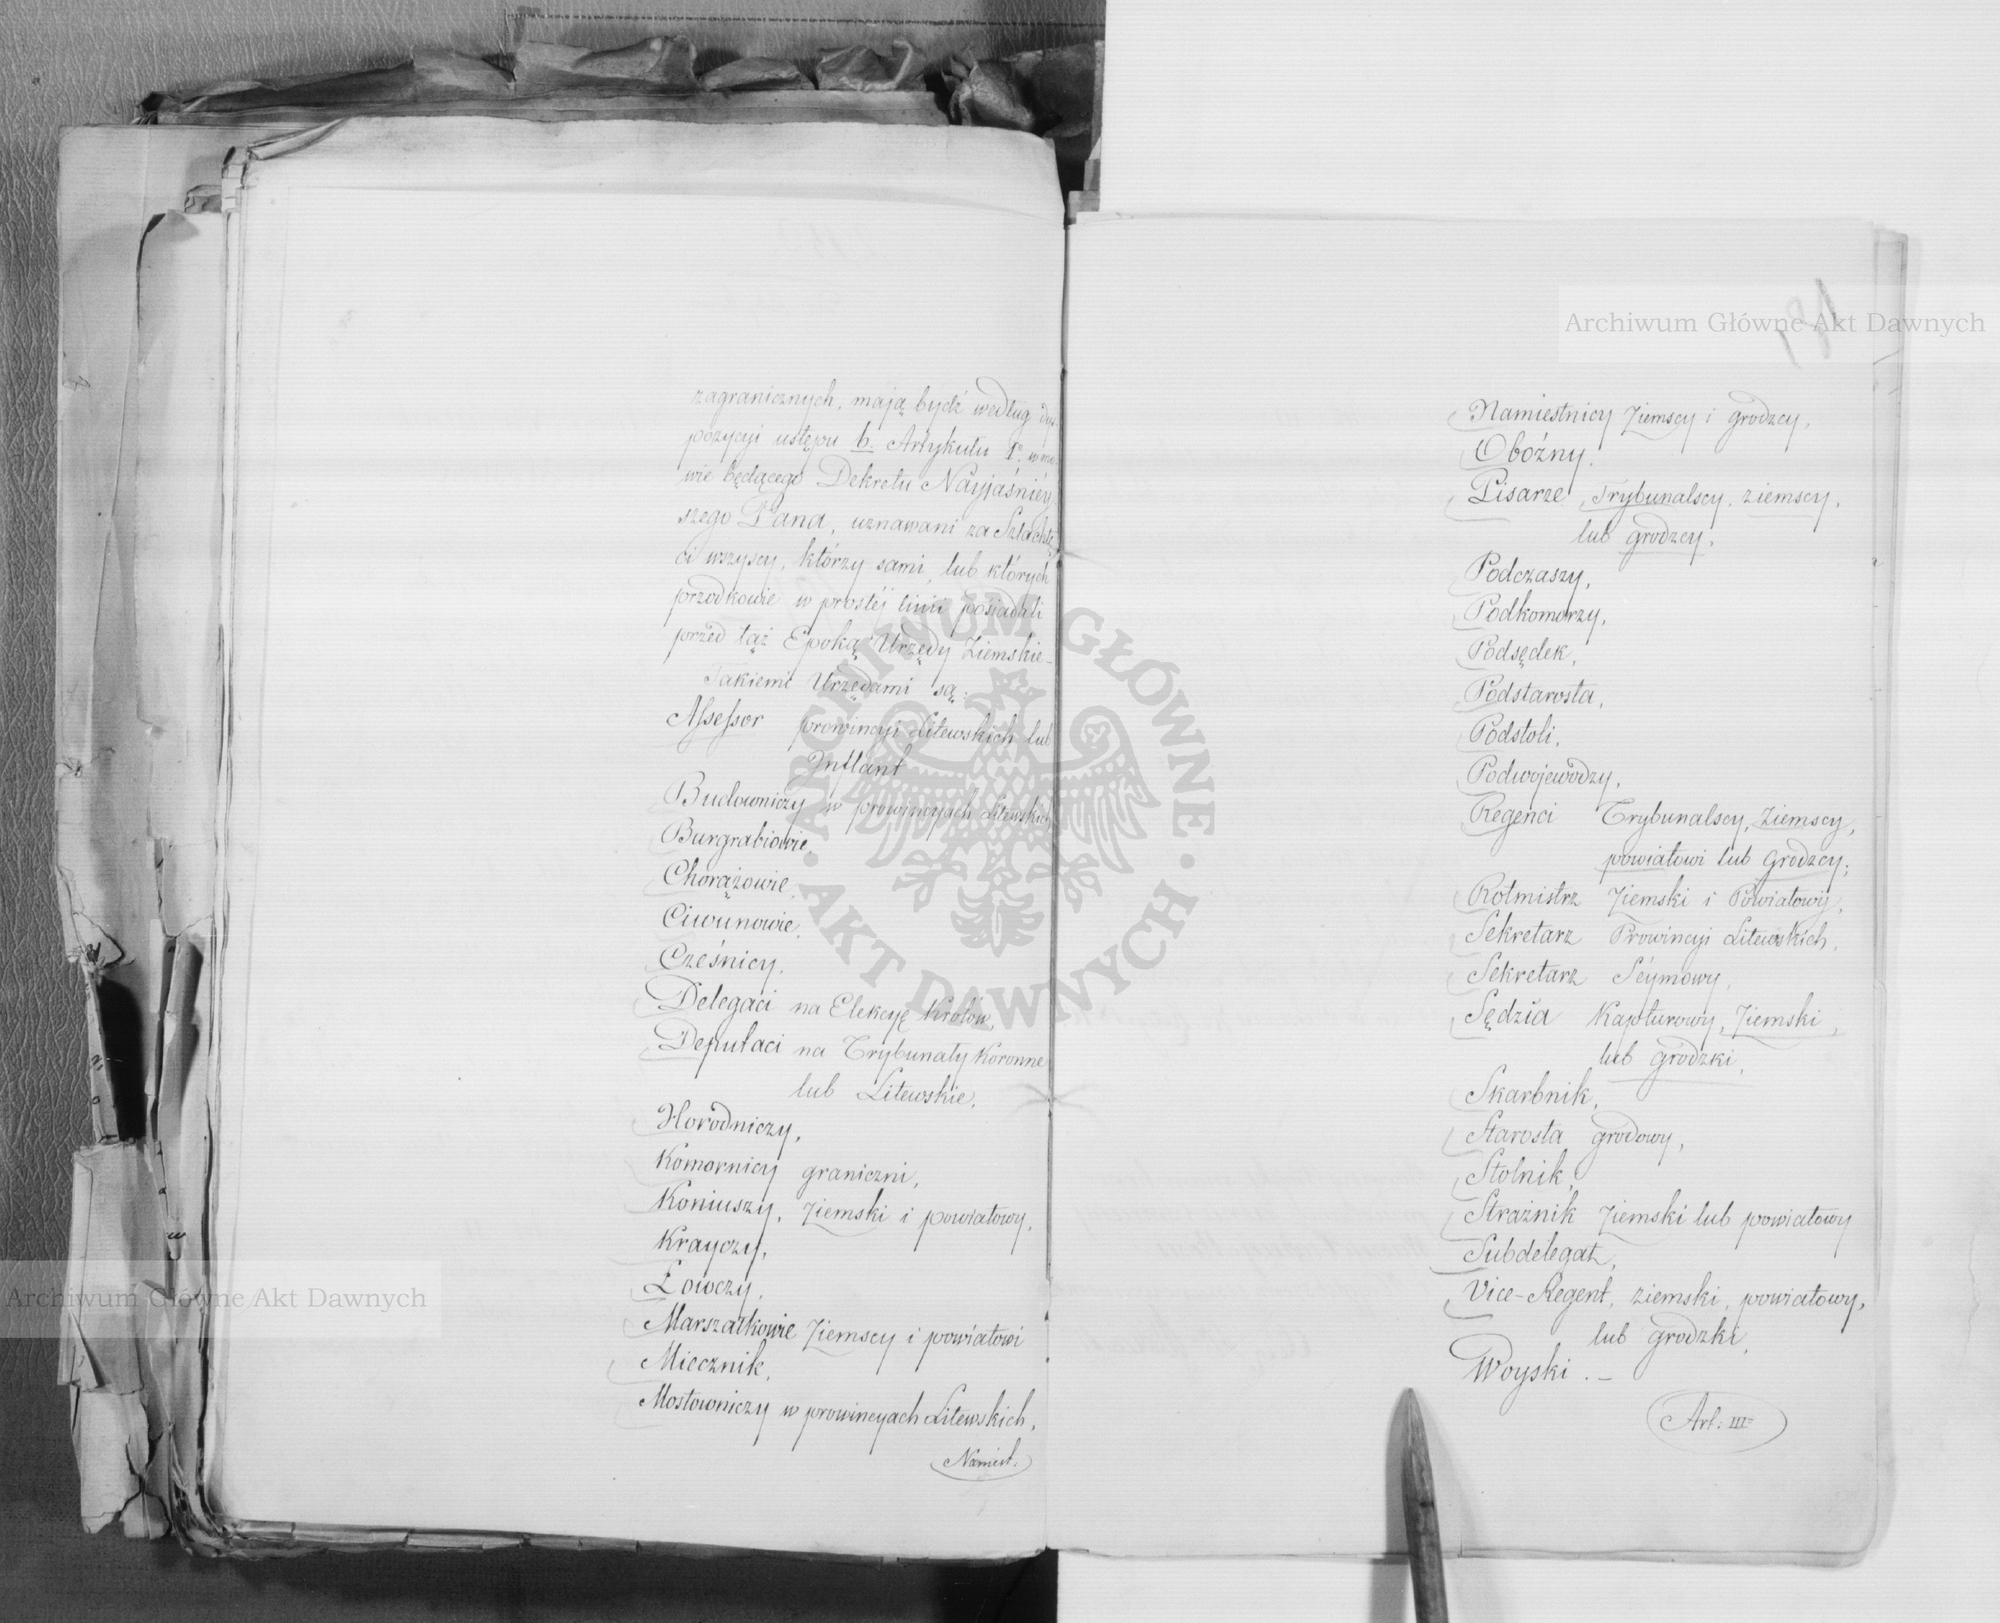 zagranicznych, mają bydź według dys-
pozycyi ustępu b. Artykułu 1º w mo-
wie będącego Dekretu Nayjaśniéy-
szego Pana, uznawani za Szlachtę
ci wszyscy, którzy sami, lub których
przodkowie w prostéj linii posiadali
przed tąż Epoką Urzędy Ziemskie_
Takiemi Urzędami są:
Assessor prowincyi Litewskich lub
Inflant
Budowniczy w prowincyach Litewskich
Burgrabiowie,
Chorążowie,
Ciwunowie,
Cześnicy,
Delegaci na Elekcyę Królów,
Deputaci na Trybunały Koronne
lub Litewskie,
Horodniczy,
Komornicy graniczni,
Koniuszy, Ziemski i powiatowy,
Krayczy,
Łowczy,
Marszałkowie Ziemscy i powiatowi
Miecznik,
Mostowniczy w prowincyach Litewskich,
Namiest.
181
Namiestnicy Ziemscy i grodzcy,
Oboźny,
Pisarze Trybunalscy, ziemscy,
lub grodzcy,
Podczaszy,
Podkomorzy,
Podsędek,
Podstarosta,
Podstoli,
Podwojewodzy,
Regenci Trybunalscy, Ziemscy,
powiatowi lub Grodzcy;
Rotmistrz Ziemski i Powiatowy,
Sekretarz Prowincyi Litewskich,
Sekretarz Seymowy,
Sędzia Kapturowy, Ziemski,
lub grodzki,
Skarbnik,
Starosta grodowy,
Stolnik,
Strażnik Ziemski lub powiatowy
Subdelegat,
Vice-Regent, ziemski, powiatowy,
lub grodzki,
Woyski._
Art: III=
Archiwum Główne Akt Dawnych
Archiwum Główne Akt Dawnych
ARCHIWUM GŁÓWNE · AKT DAWNYCH ·